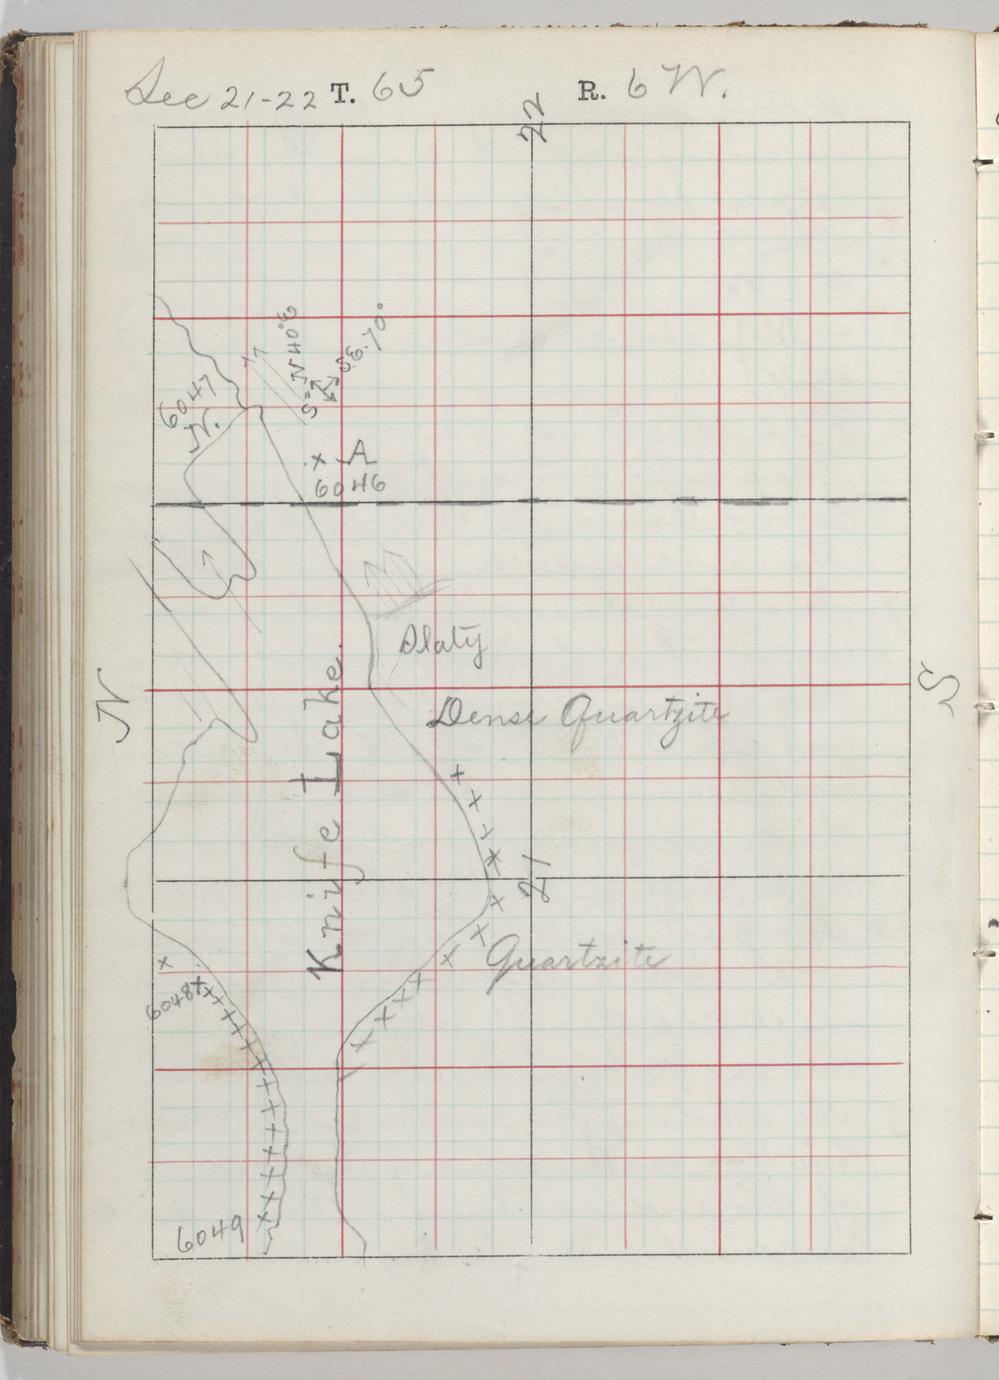 Sec 21-22 T. 65 R. 6 W.
22
S = N 40° E
S.E. 70°
6047
N.
x A
6046
Slaty
N
S
Knife Lake.
Dense Quartzite
21
Quartzite
6048
6049